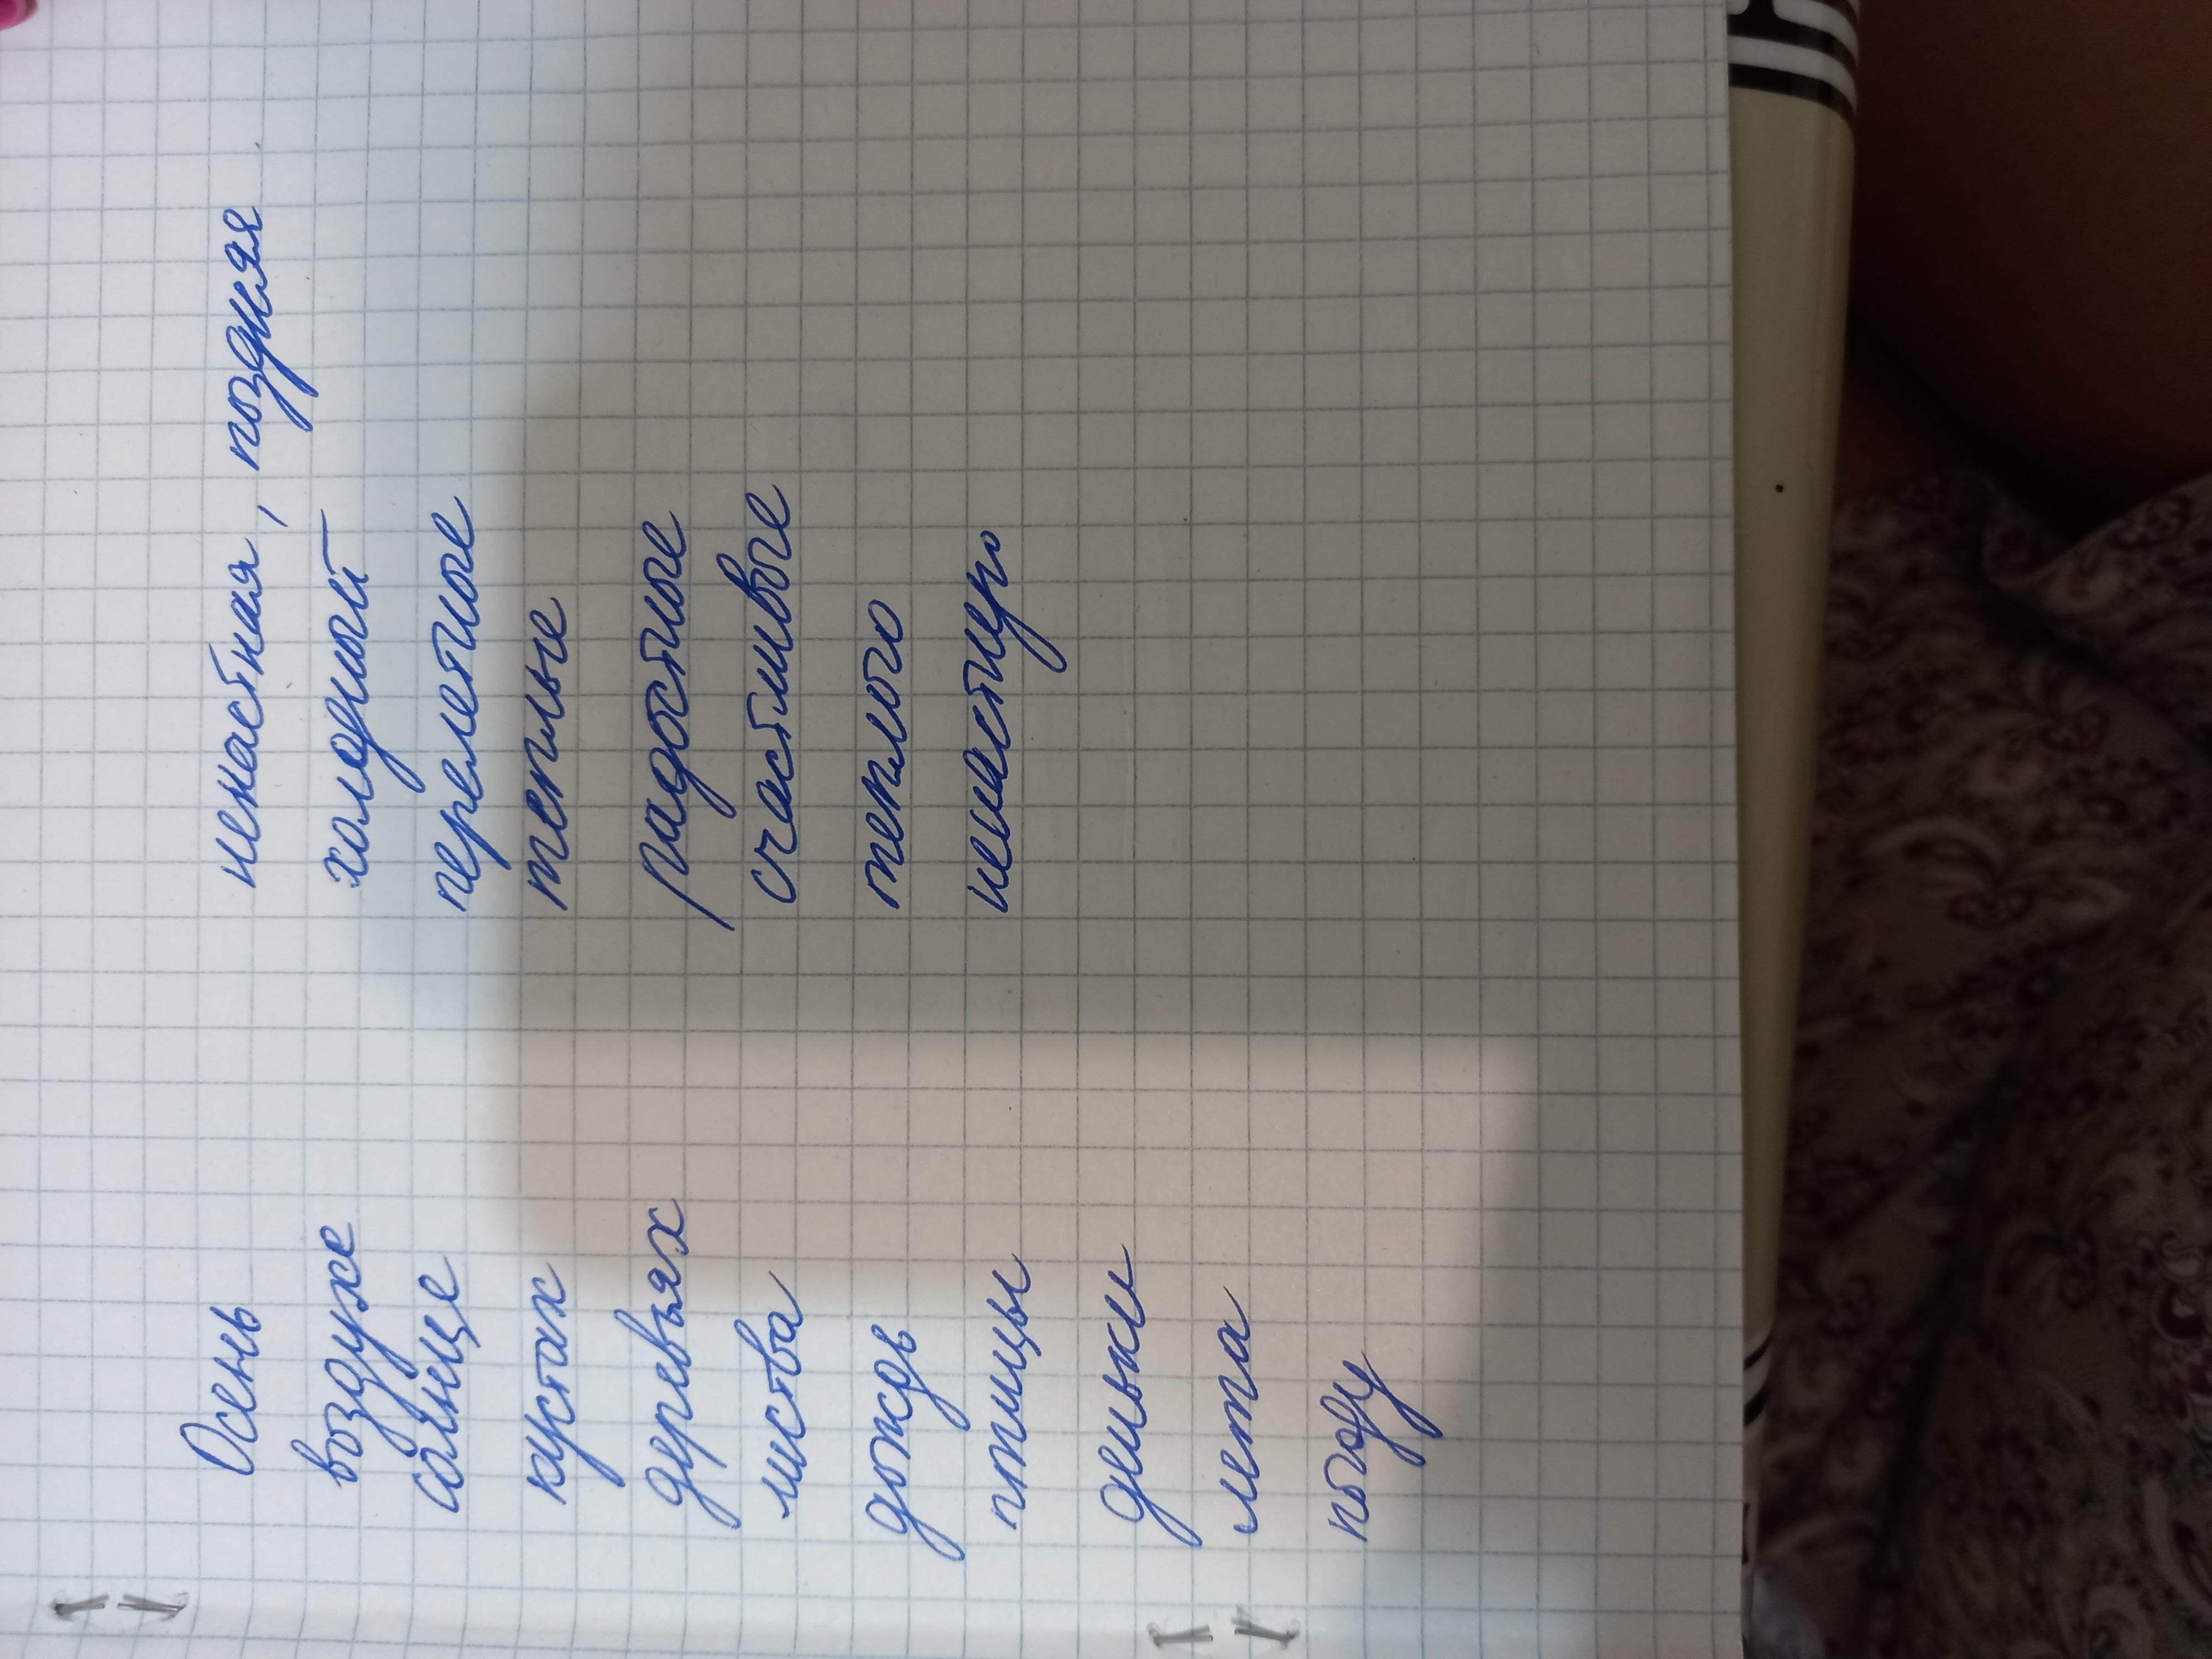 Осень ненастная, поздняя
воздухе холодный
солнце перелетные
кустах теплые
деревьях радостные
листва счастливые
дождь теплого
птицы
деньки
лета